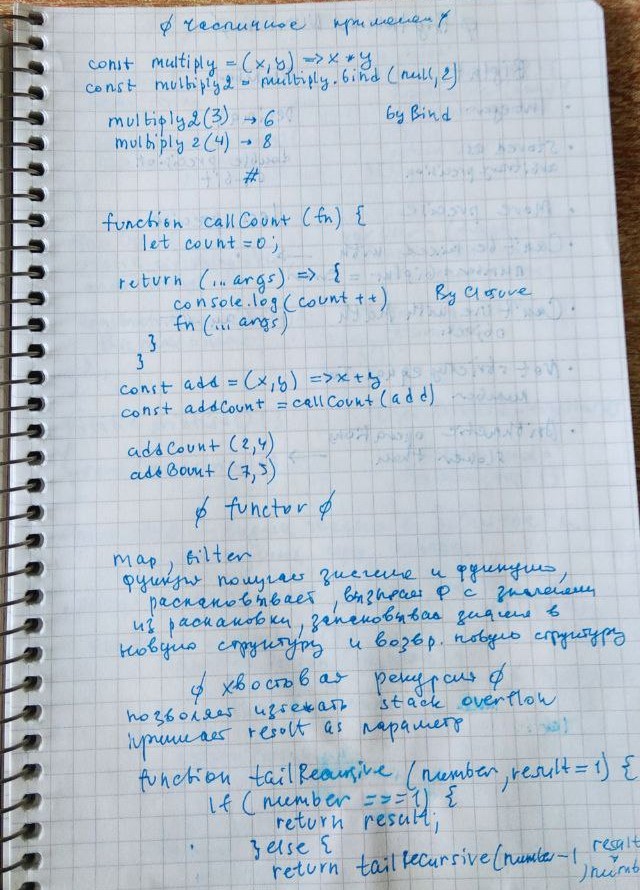 ∅ частичное применен ∅
const multiply = (x, y) => x * y
const multiply2 = multiply.bind (null, 2)
multiply2(3) → 6 by Bind
multiply2(4) → 8
#
function callCount (fn) {
let count = 0;
return (...args) => {
console.log(count++) By Closure
fn(...args)
}
}
const add = (x, y) => x + y
const addCount = callCount(add)
addCount (2,4)
(7,5)
∅ functor ∅
map, filter
функция получает значение и функцию,
распаковывает, вызывает ф с значением
из распаковки, запаковывая значен в
новую структуру и возвр. новую структуру
∅ хвостовая рекурсия ∅
позволяет избежать stack overflow
принимает result as параметр
function tailRecursive (number, result = 1) {
if (number === 1) {
return result;
} else {
return tailRecursive(number-1, result